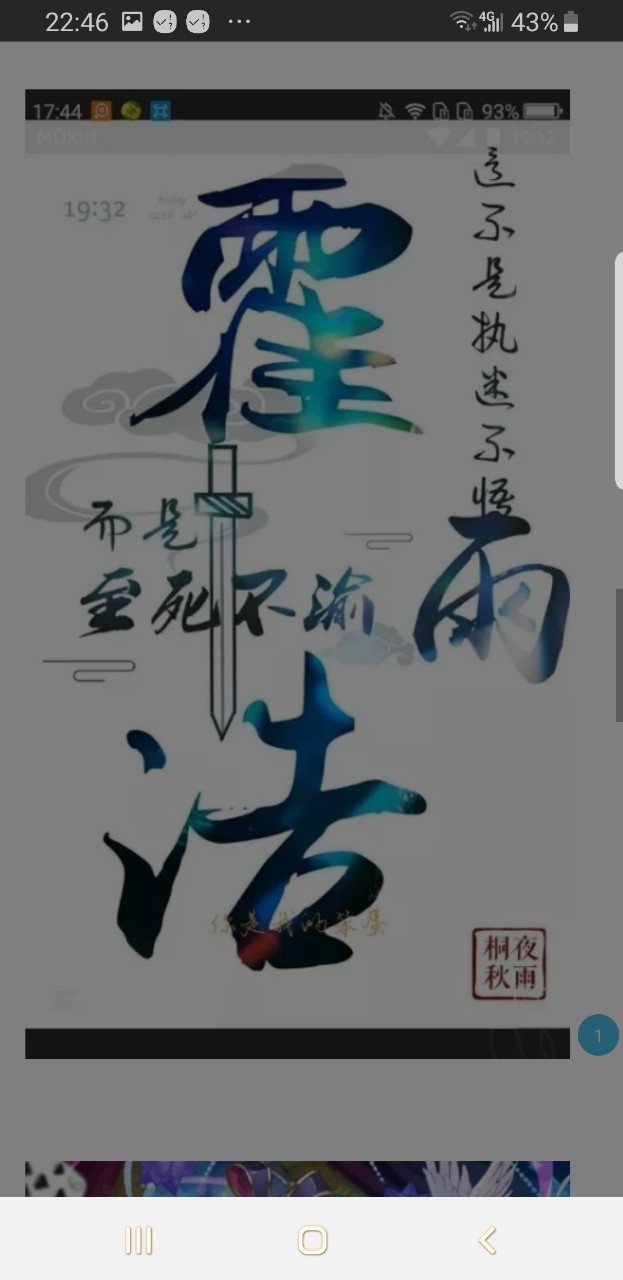 22:46 4G 43%
17:44 93%
MOXIU 19:32
19:32
霍
雨
浩
这不是执迷不悟
而是
至死不渝
你是我的笨蛋
桐夜
秋雨
1